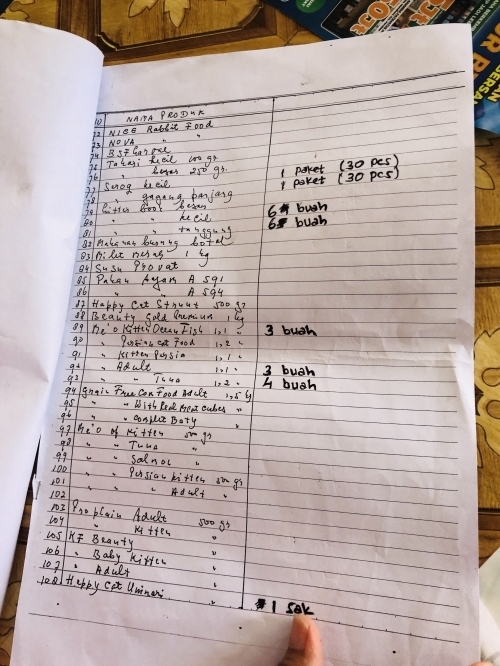 NO NAMA PRODUK
72 NICE Rabbit Food
73 NOVA " "
74 BSF Larvae
75 Takari kecil 100 gr. 1 paket (30 pcs)
76 " besar 250 gr. 1 paket (30 pcs)
77 Serog kecil
78 " gagang panjang
79 Litter boot besar 6 buah
80 " kecil 6 buah
81 " tanggung
82 Makanan burung botol
83 Milet Merah 1 kg
84 Susu PROVAT
85 Pakan Ayam A 591
86 " " A 594
87 Happy Cat Struvit 500 gr
88 Beauty Gold Premium 1 kg
89 Me'o Kitten Ocean Fish 1,1 " 3 buah
90 " Persian cat Food 1,2 "
91 " Kitten Persia 1,1 "
92 " Adult 1,1 " 3 buah
93 " " Tuna 1,2 " 4 buah
94 Grain Free Can Food Adult 1,5 kg
95 " " With Real Meat Cubes "
96 " " Complet Baty "
97 Me'O of Kitten 500 gr
98 " " Tuna "
99 " " Salmon "
100 " " Persian kitten 500 gr
101 " " " Adult "
102
103 Proplain Adult 500 gr
104 " Kitten "
105 KF Beauty "
106 " Baby Kitten "
107 " Adult "
108 Happy Cat Urinari " 1 Sak